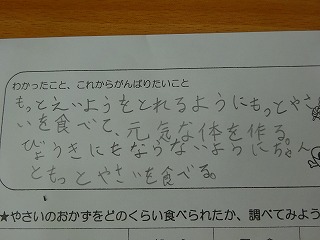 わかったこと、これからがんばりたいこと
もっとえいようをとれるようにもっとやさ
いを食べて、元気な体を作る。
びょうきにもならないようにちゃん
ともっとやさいを食べる。
★やさいのおかずをどのくらい食べられたか、調べてみよう